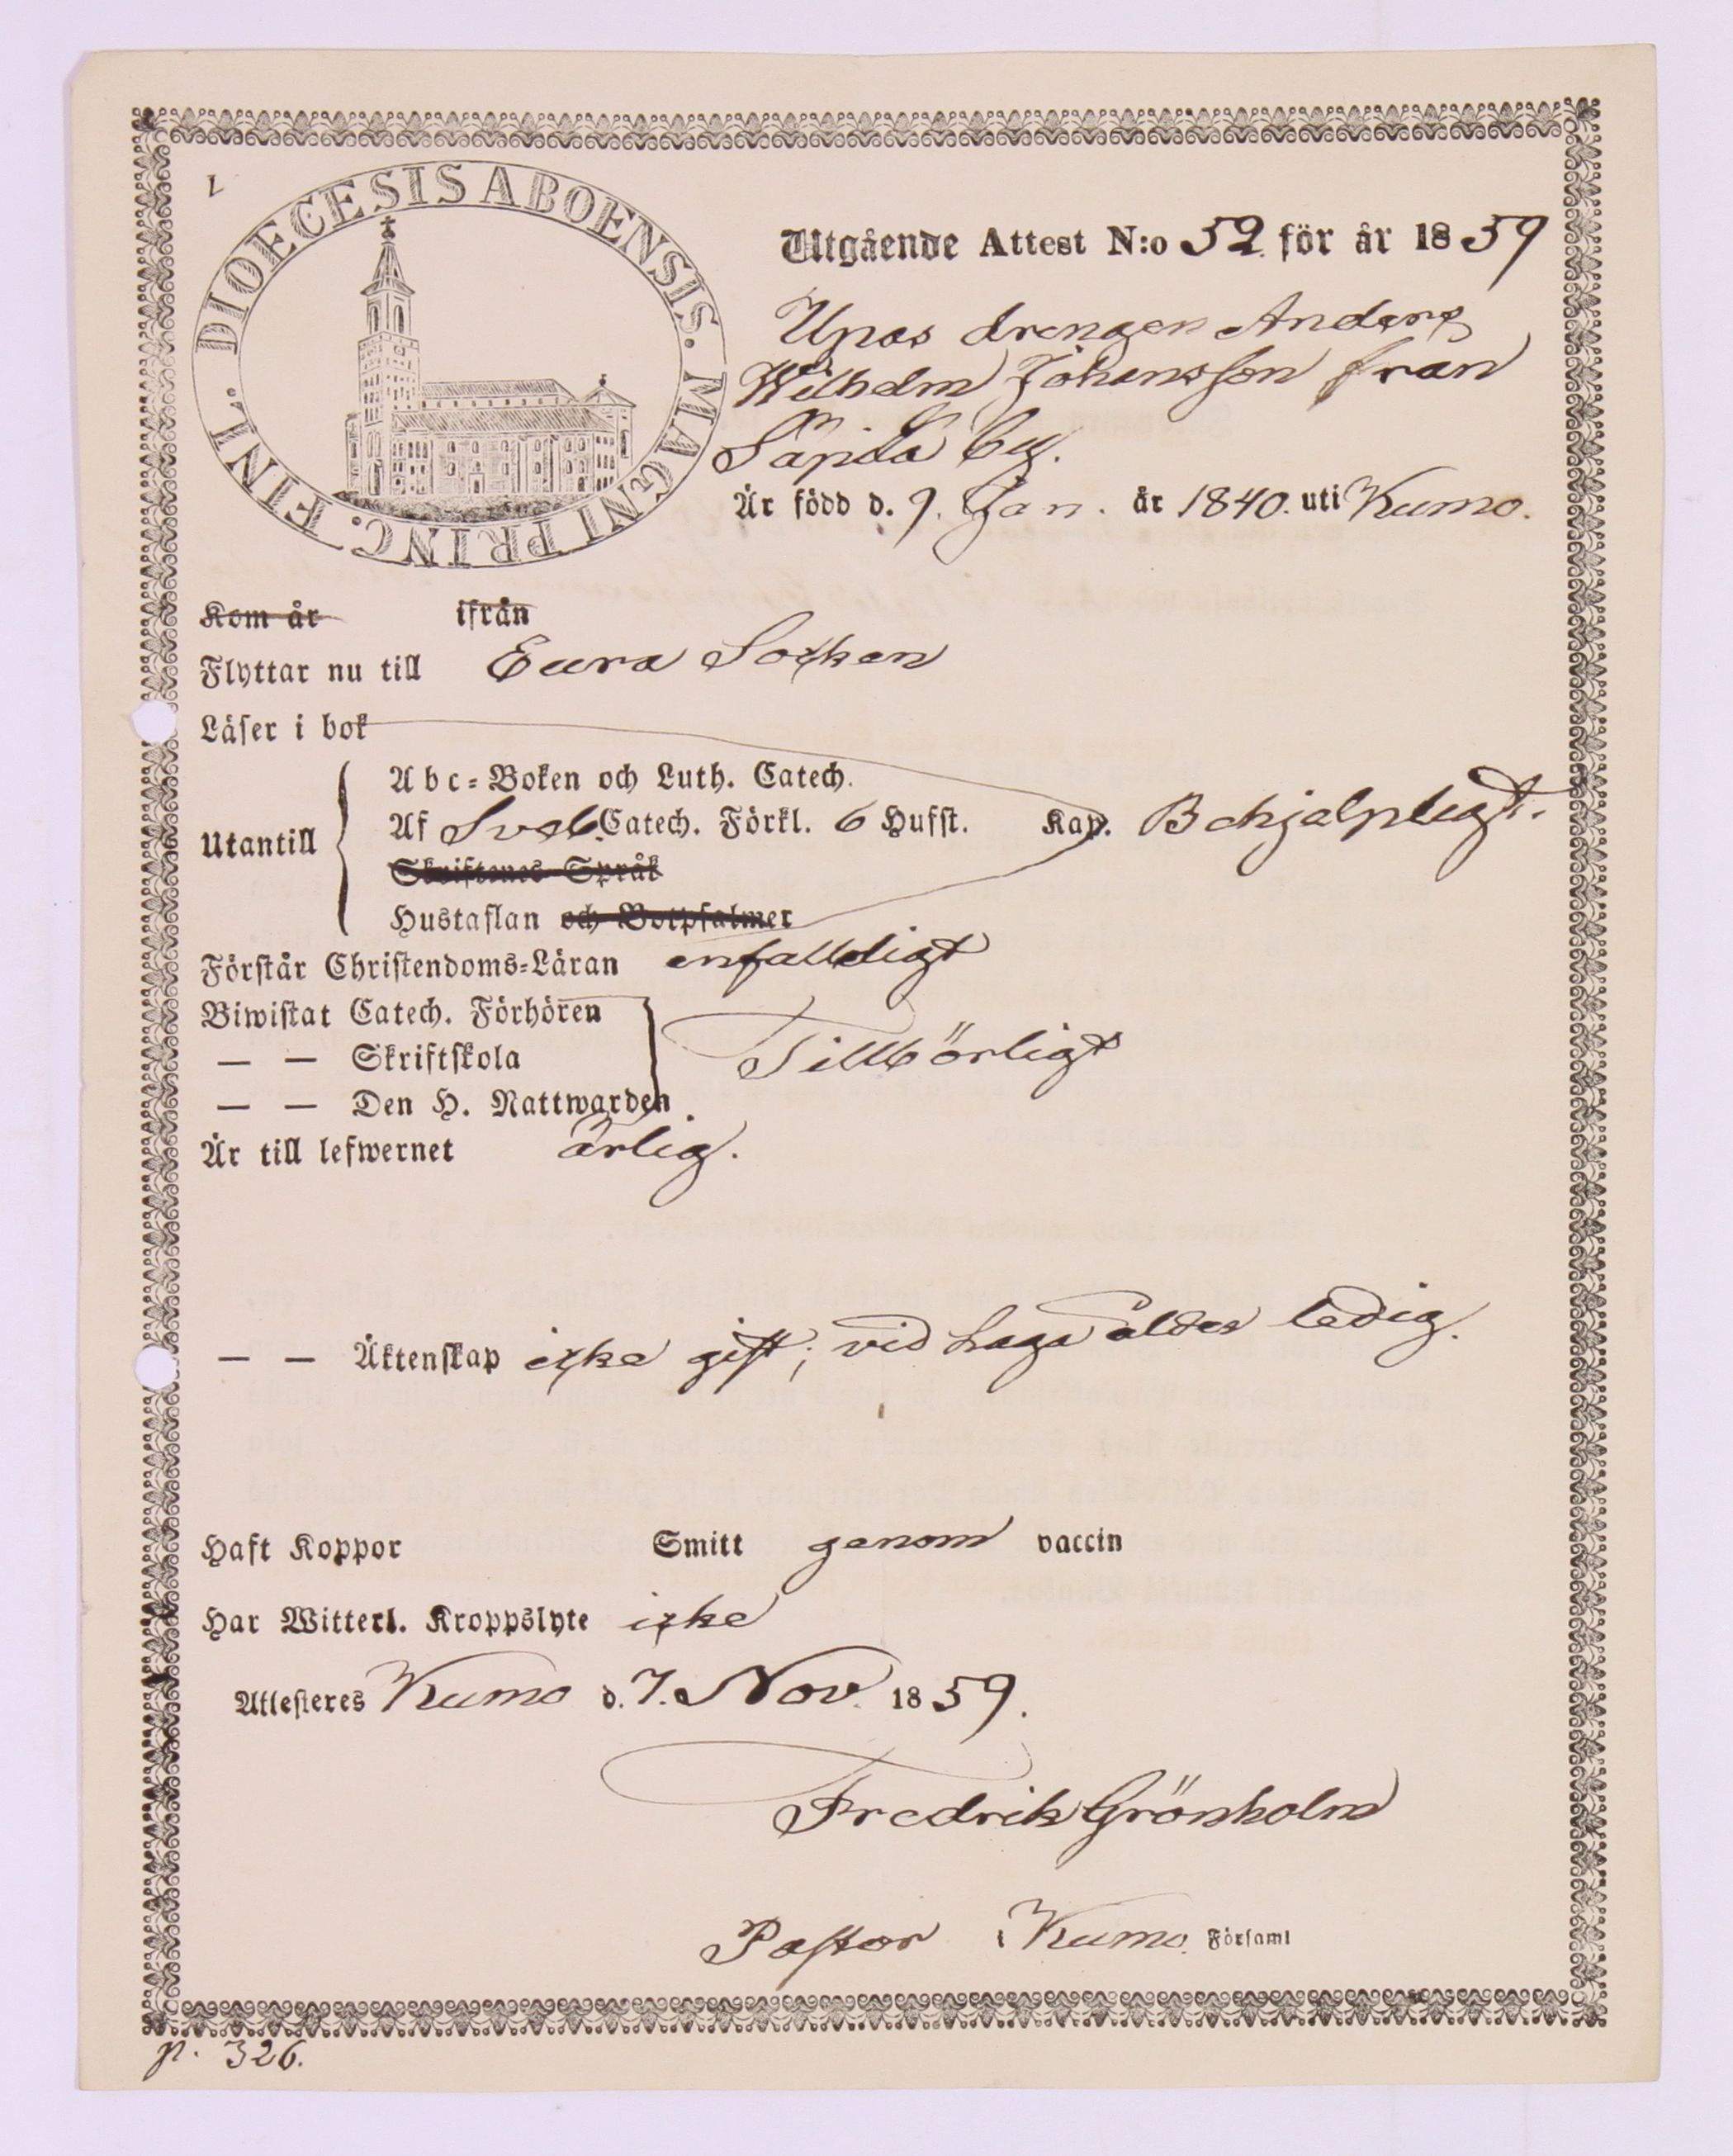 DIOECESIS ABOENSIS. MAGNI PRINC. FINL.
Utgående Attest N:o 52. för år 1859
Unge drengen Anders
Wilhelm Johansson från
Säpilä by.
Är född d. 9. Jan. år 1840. uti Kumo.
Kom år ifrån
Flyttar nu till Eura Socken
Läser i bok
Utantill
Abc-Boken och Luth. Catech.
Af Sveb. Catech. Förkl. 6 Hufst. Kap. Behjelpligt.
Skriftenes Språk
Hustaflan och Botpsalmer
Förstår Christendoms-Läran enfalldigt
Biwistat Catech. Förhören
— — Skriftskola Tillbörligt
— — Den H. Nattwarden
Är till lefwernet ärlig.
— — Äktenskap icke gift; vid Laga ålder ledig.
Haft Koppor Smitt genom vaccin
Har Witterl. Kroppslyte icke
Attesteres Kumo d. 7. Nov. 1859.
Fredrik Grönholm
Pastor i Kumo Församl
p. 326.